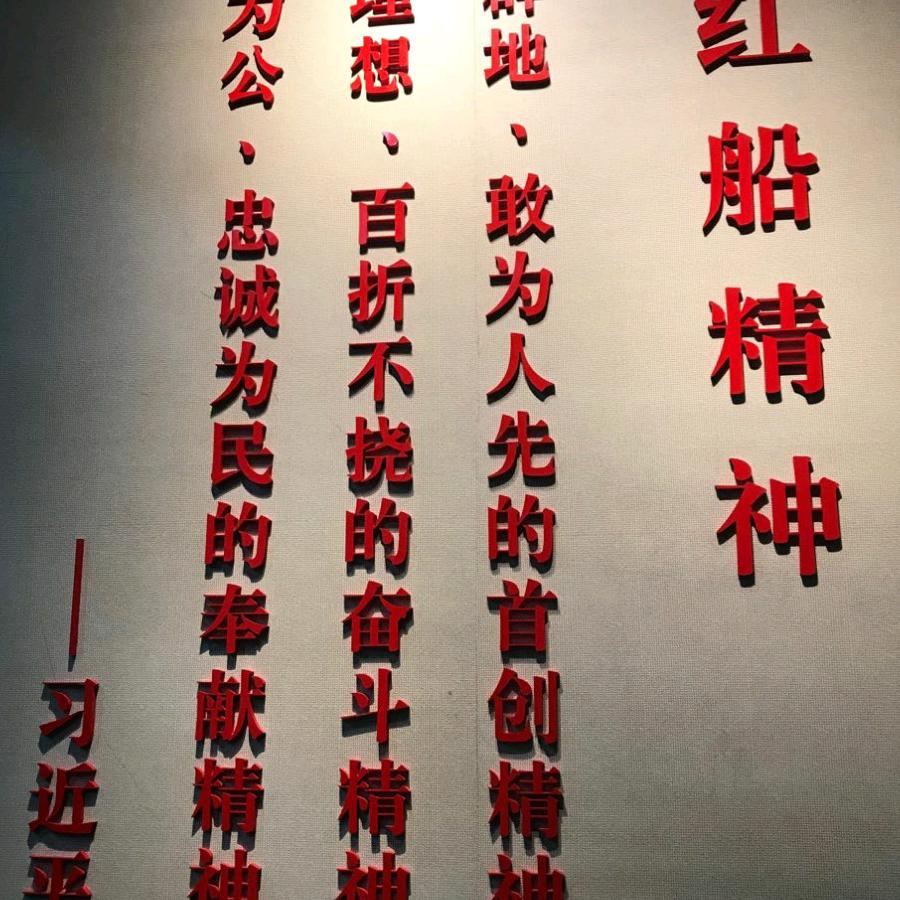 红船精神
辟地、敢为人先的首创精神
理想、百折不挠的奋斗精神
为公、忠诚为民的奉献精神
——习近平